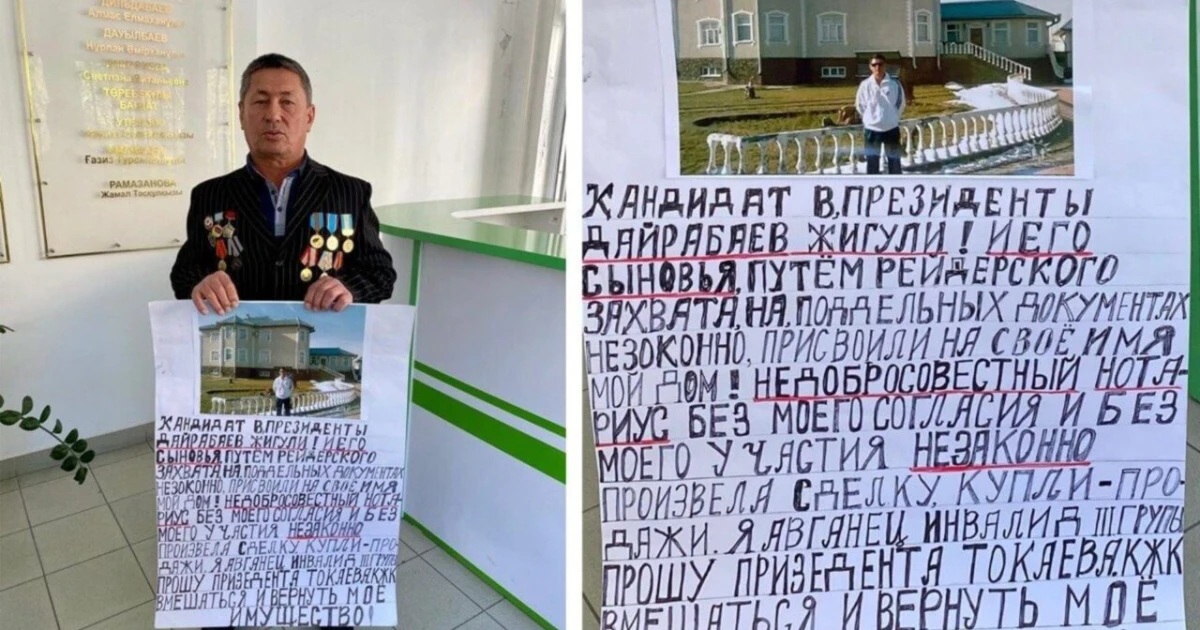 ДИЛЬДАБАЕВ
Алмас Елмаханұлы
ДАУЫЛБАЕВ
РАМАЗАНОВА
КАНДИДАТ В,ПРЕЗИДЕНТЫ
ДАЙРАБАЕВ ЖИГУЛИ! ИЕГО
СЫНОВЬЯ,ПУТЁМ РЕЙДЕРСКОГО
ЗАХВАТА,НА,ПОДДЕЛЬНЫХ ДОКУМЕНТАХ
НЕЗОКОННО, ПРИСВОИЛИ НА СВОЁ ИМЯ
МОЙ ДОМ! НЕДОБРОСОВЕСТНЫЙ НОТА-
РИУС БЕЗ МОЕГО СОГЛАСИЯ И БЕЗ
МОЕГО УЧАСТИЯ НЕЗАКОННО
ПРОИЗВЕЛА СДЕЛКУ КУПЛИ-ПРО-
ДАЖИ. Я АВГАНЕЦ ИНВАЛИД III ГРУП
ПРОШУ ПРИЗЕДЕНТА ТОКАЕВА.КЖК
ВМЕШАТЬСЯ И ВЕРНУТЬ МОЁ
ИМУЩЕСТВО!
КАНДИДАТ В,ПРЕЗИДЕНТЫ
ДАЙРАБАЕВ ЖИГУЛИ! ИЕГО
СЫНОВЬЯ,ПУТЁМ РЕЙДЕРСКОГО
ЗАХВАТА,НА,ПОДДЕЛЬНЫХ ДОКУМЕНТАХ
НЕЗОКОННО, ПРИСВОИЛИ НА СВОЁ ИМЯ
МОЙ ДОМ! НЕДОБРОСОВЕСТНЫЙ НОТА-
РИУС БЕЗ МОЕГО СОГЛАСИЯ И БЕЗ
МОЕГО УЧАСТИЯ НЕЗАКОННО
ПРОИЗВЕЛА СДЕЛКУ, КУПЛИ-ПРО-
ДАЖИ. Я АВГАНЕЦ ИНВАЛИД III ГРУПЫ
ПРОШУ ПРИЗЕДЕНТА ТОКАЕВА.КЖК
ВМЕШАТЬСЯ И ВЕРНУТЬ МОЁ